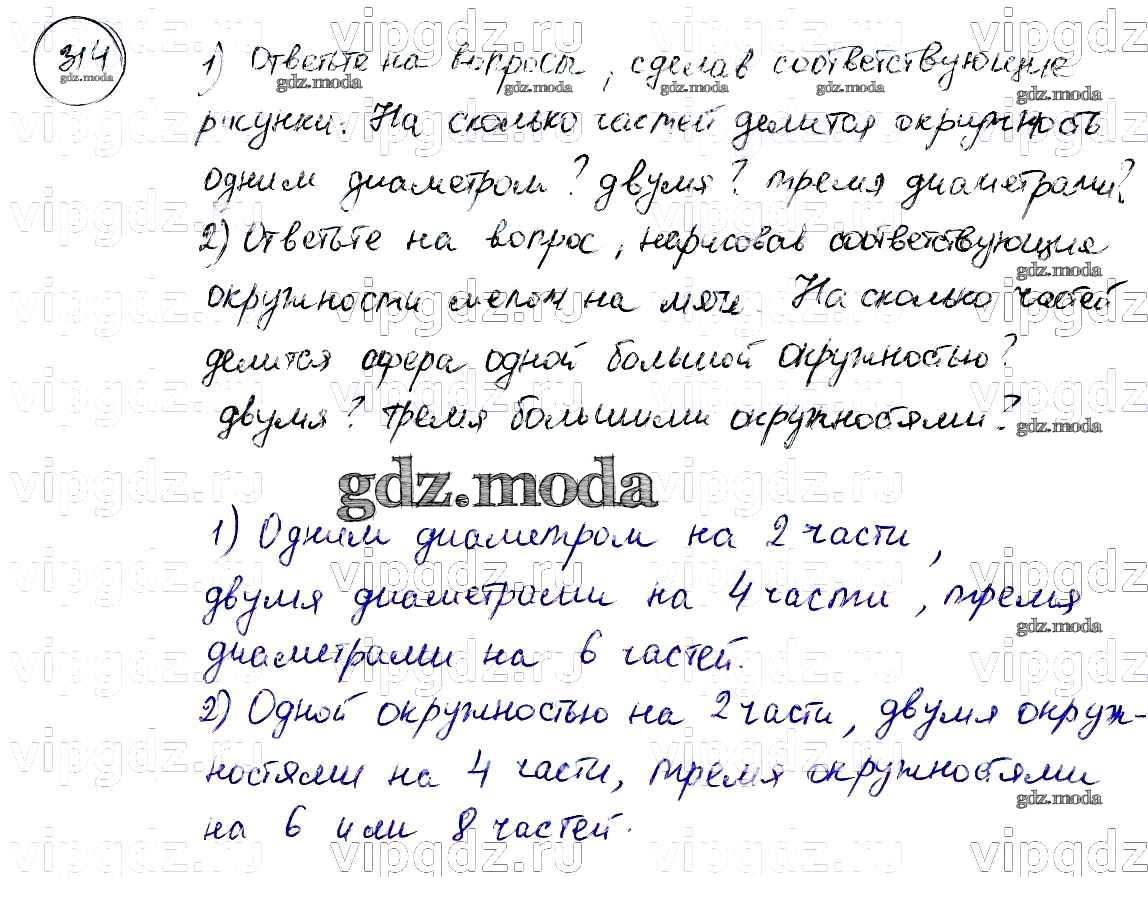 314
1) Ответьте на вопросы, сделав соответствующие
рисунки. На сколько частей делится окружность
одним диаметром? двумя? тремя диаметрами?
2) Ответьте на вопрос, нарисовав соответствующие
окружности мелом на мяче. На сколько частей
делится сфера одной большой окружностью?
двумя? тремя большими окружностями?
gdz.moda
1) Одним диаметром на 2 части,
двумя диаметрами на 4 части, тремя
диаметрами на 6 частей.
2) Одной окружностью на 2 части, двумя окруж-
ностями на 4 части, тремя окружностями
на 6 или 8 частей.